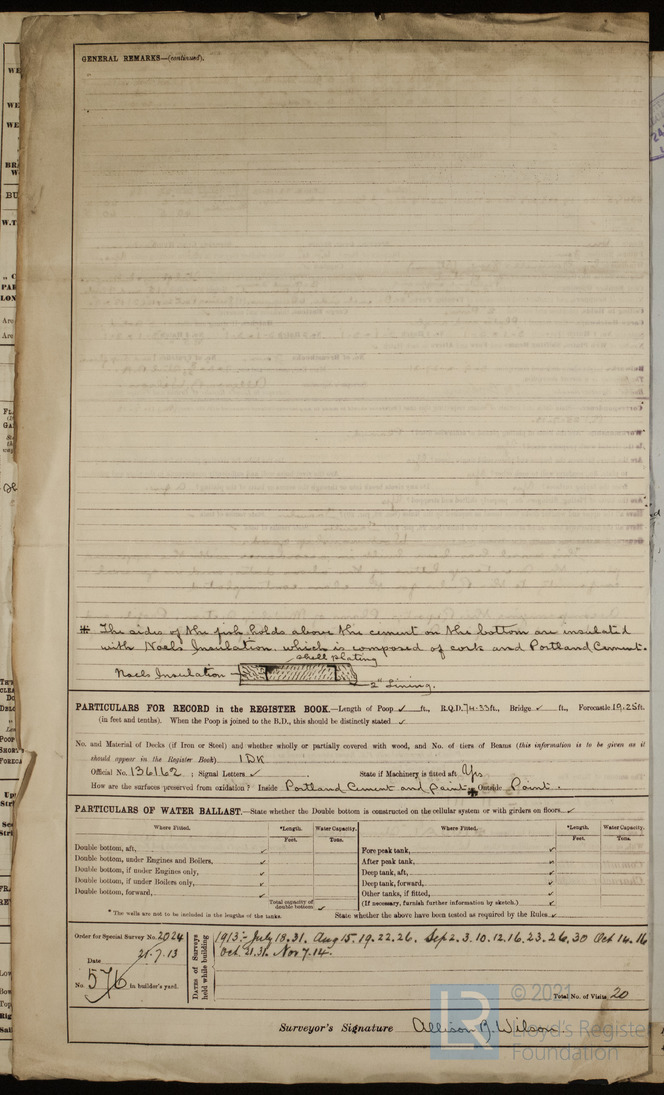 GENERAL REMARKS—(continued).
# The sides of the fish holds above the cement on the bottom are insulated
with Noels Insulation. which is composed of cork and Portland Cement.
shell plating
Noels Insulation
2" Lining.
PARTICULARS FOR RECORD in the REGISTER BOOK.—Length of Poop ✓ ft., R.Q.D. 74.33 ft., Bridge ✓ ft., Forecastle 19.25 ft.
(in feet and tenths). When the Poop is joined to the B.D., this should be distinctly stated ✓
No. and Material of Decks (if Iron or Steel) and whether wholly or partially covered with wood, and No. of tiers of Beams (this information is to be given as it
should appear in the Register Book) 1 DK
Official No. 136162 ; Signal Letters ✓ State if Machinery is fitted aft Yes
How are the surfaces preserved from oxidation? Inside Portland Cement and paint Outside Paint.
PARTICULARS OF WATER BALLAST.—State whether the Double bottom is constructed on the cellular system or with girders on floors ✓
Where Fitted. *Length. Water Capacity. Where Fitted. *Length. Water Capacity.
Feet. Tons. Feet. Tons.
Double bottom, aft, ✓ Fore peak tank, ✓
Double bottom, under Engines and Boilers, ✓ After peak tank, ✓
Double bottom, if under Engines only, ✓ Deep tank, aft, ✓
Double bottom, if under Boilers only, ✓ Deep tank, forward, ✓
Double bottom, forward, ✓ Other tanks, if fitted, ✓
Total capacity of double bottom ✓ (If necessary, furnish further information by sketch.) ✓
* The walls are not to be included in the lengths of the tanks. State whether the above have been tested as required by the Rules ✓
Order for Special Survey No. 2024
Date 21.7.13
No. 576 in builder's yard.
DATES of Surveys held while building
1913:- July 18.31. Aug 15.19.22.26. Sep 2.3.10.12.16.23.26.30 Oct 14.16
Oct. 21.31. Nov 7.14.
Total No. of Visits 20
Surveyor's Signature Allison R. Wilson.
LR
© 2021
Lloyd's Register
Foundation